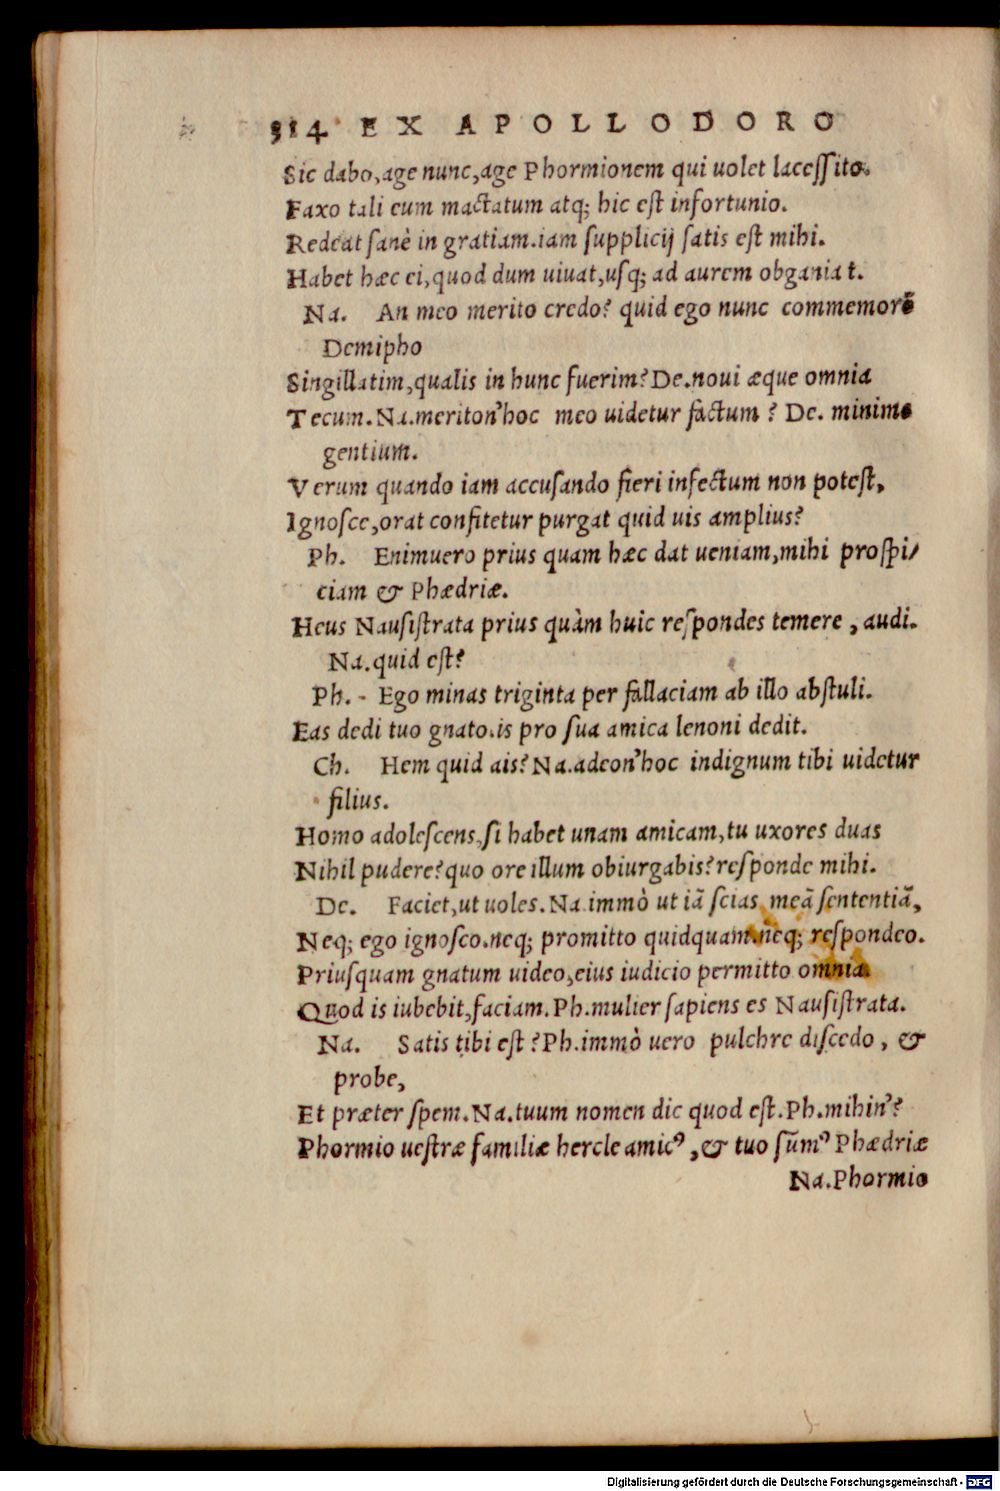 314 EX APOLLODORO
Sic dabo, age nunc, age Phormionem qui uolet lacessito.
Faxo tali eum mactatum atq; hic est infortunio.
Redeat sanè in gratiam. iam supplicij satis est mihi.
Habet hæc ei, quod dum uiuat, usq; ad aurem obganiat.
Na. An meo merito credo? quid ego nunc commemorẽ
Demipho
Singillatim, qualis in hunc fuerim? De. noui æque omnia
Tecum. Na. meriton'hoc meo uidetur factum? De. minime
gentium.
Verum quando iam accusando fieri infectum non potest,
Ignosce, orat confitetur purgat quid uis amplius?
Ph. Enimuero prius quam hæc dat ueniam, mihi prospi/
ciam & Phædriæ.
Heus Nausistrata prius quàm huic respondes temere, audi.
Na. quid est?
Ph. - Ego minas triginta per fallaciam ab illo abstuli.
Eas dedi tuo gnato. is pro sua amica lenoni dedit.
Ch. Hem quid ais? Na. adeon'hoc indignum tibi uidetur
filius.
Homo adolescens, si habet unam amicam, tu uxores duas
Nihil pudere? quo ore illum obiurgabis? responde mihi.
De. Faciet, ut uoles. Na immò ut iã scias meã sententiã,
Neq; ego ignosco. neq; promitto quidquam. neq; respondeo.
Priusquam gnatum uideo, eius iudicio permitto omnia.
Quod is iubebit, faciam. Ph. mulier sapiens es Nausistrata.
Na. Satis tibi est? Ph. immò uero pulchre discedo, &
probe,
Et præter spem. Na. tuum nomen dic quod est. Ph. mihin'?
Phormio uestræ familiæ hercle amicꝰ, & tuo sũmꝰ Phædriæ
Na. Phormio
Digitalisierung gefördert durch die Deutsche Forschungsgemeinschaft - DFG